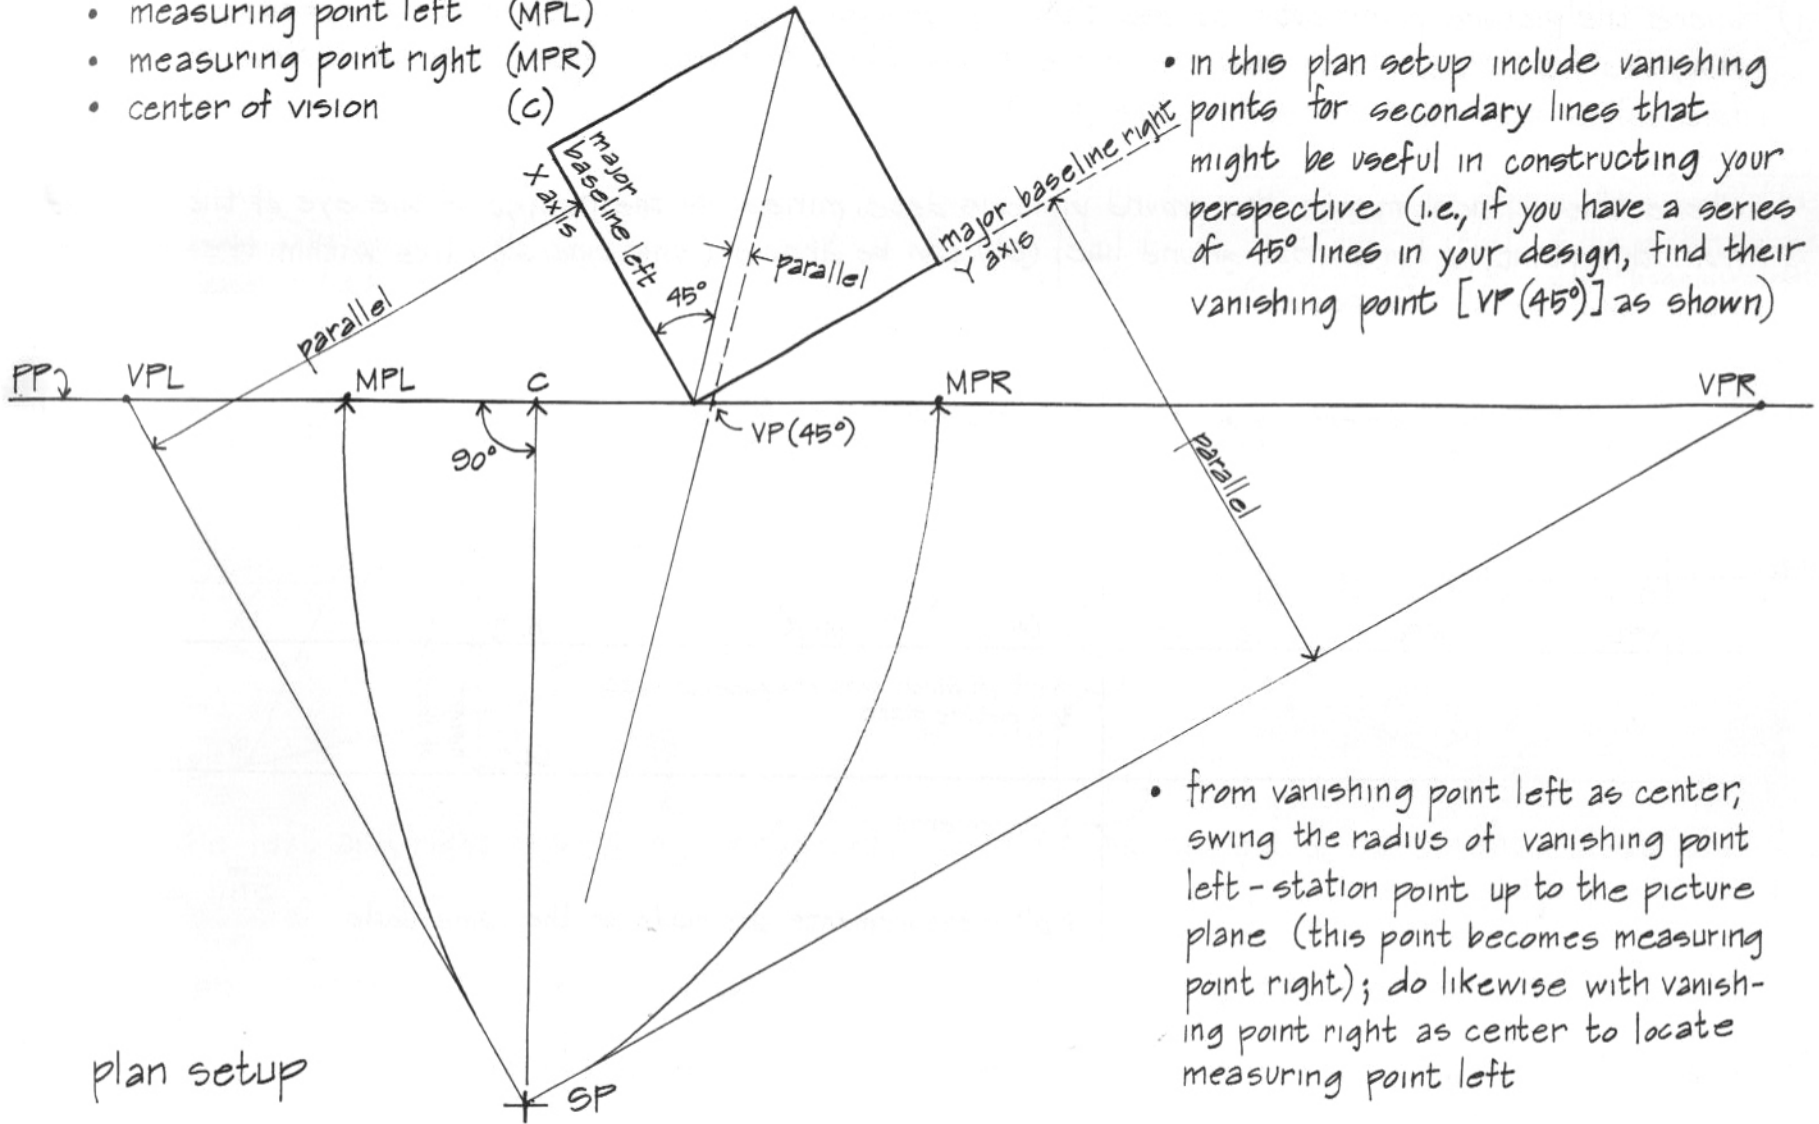 • measuring point left (MPL)
• measuring point right (MPR)
• center of vision (C)
• in this plan setup include vanishing
points for secondary lines that
might be useful in constructing your
perspective (i.e., if you have a series
of 45° lines in your design, find their
vanishing point [VP (45°)] as shown)
major
baseline left
X axis
major baseline right
Y axis
parallel
45°
parallel
PP
VPL
MPL
C
MPR
VPR
90°
VP (45°)
parallel
• from vanishing point left as center,
swing the radius of vanishing point
left - station point up to the picture
plane (this point becomes measuring
point right); do likewise with vanish-
ing point right as center to locate
measuring point left
plan setup
SP